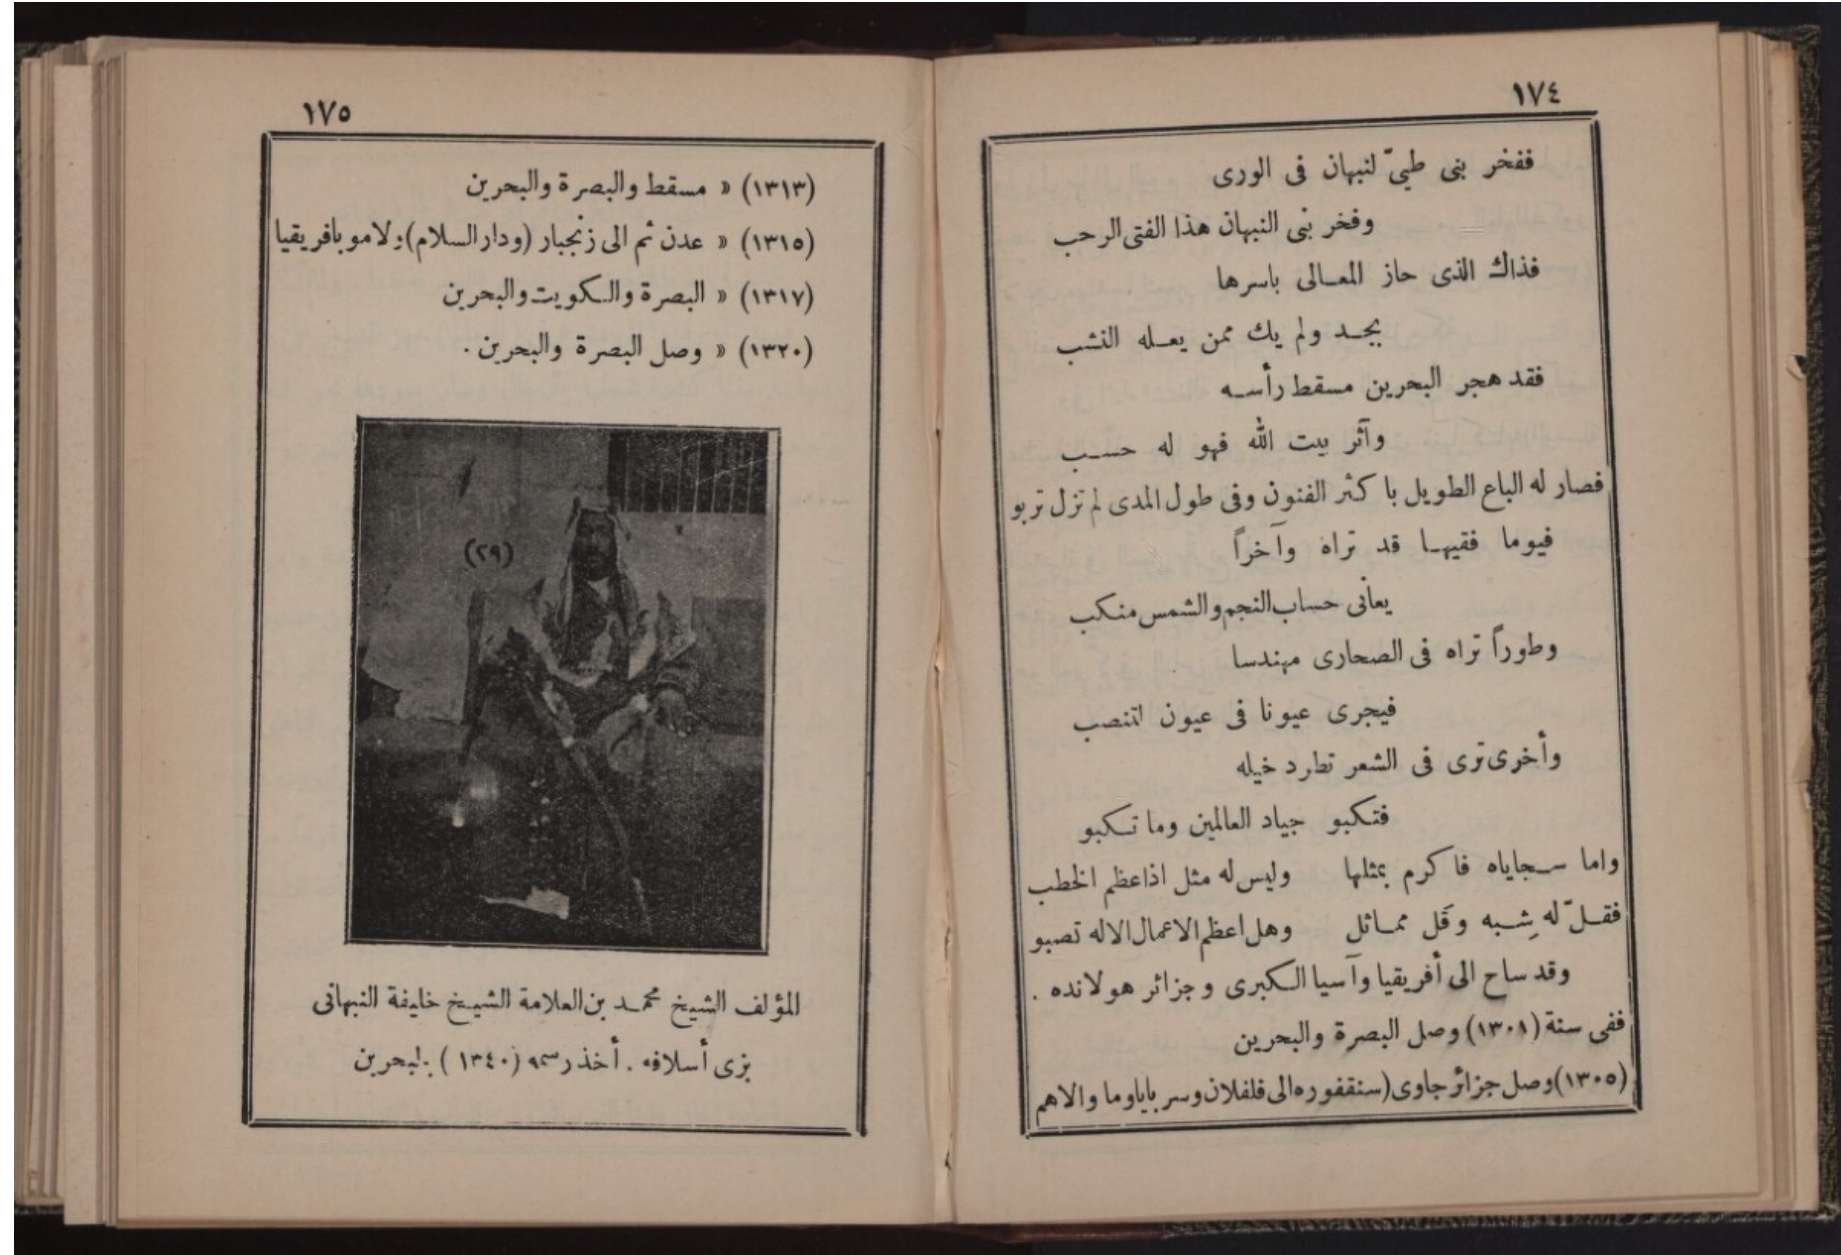 ١٧٤
ففخر بنى طيّ لنبهان فى الورى
وفخر بنى النبهان هذا الفتى الرحب
فذاك الذى حاز المعالى باسرها
بجد ولم يك ممن يعله النشب
فقد هجر البحرين مسقط رأسه
وآثر بيت الله فهو له حسب
فصار له الباع الطويل باكثر الفنون وفى طول المدى لم تزل تربو
فيوما فقيها قد تراه وآخراً
يعانى حساب النجم والشمس منكب
وطوراً تراه فى الصحارى مهندسا
فيجرى عيونا فى عيون لتنصب
وأخرى ترى فى الشعر تطارد خيله
فتكبو جياد العالمين وما تكبو
واما سجاياه فاكرم بمثلها وليس له مثل اذا عظم الخطب
فقلّ له شِبه وقَل مماثل وهل اعظم الاعمال الا له تصبو
وقد ساح الى أفريقيا وآسيا الكبرى وجزائر هولانده .
ففى سنة (١٣٠١) وصل البصرة والبحرين
(١٣٠٥) وصل جزائر جاوى (سنقفوره الى فلفلان وسر باياوما والاهم
١٧٥
(١٣١٣) » مسقط والبصرة والبحرين
(١٣١٥) » عدن ثم الى زنجبار (ودار السلام) ولامو بافريقيا
(١٣١٧) » البصرة والكويت والبحرين
(١٣٢٠) » وصل البصرة والبحرين .
(٢٩)
المؤلف الشيخ محمد بن العلامة الشيخ خليفة النبهانى
بزى أسلافه . أخذ رسمه (١٣٤٠) بالبحرين